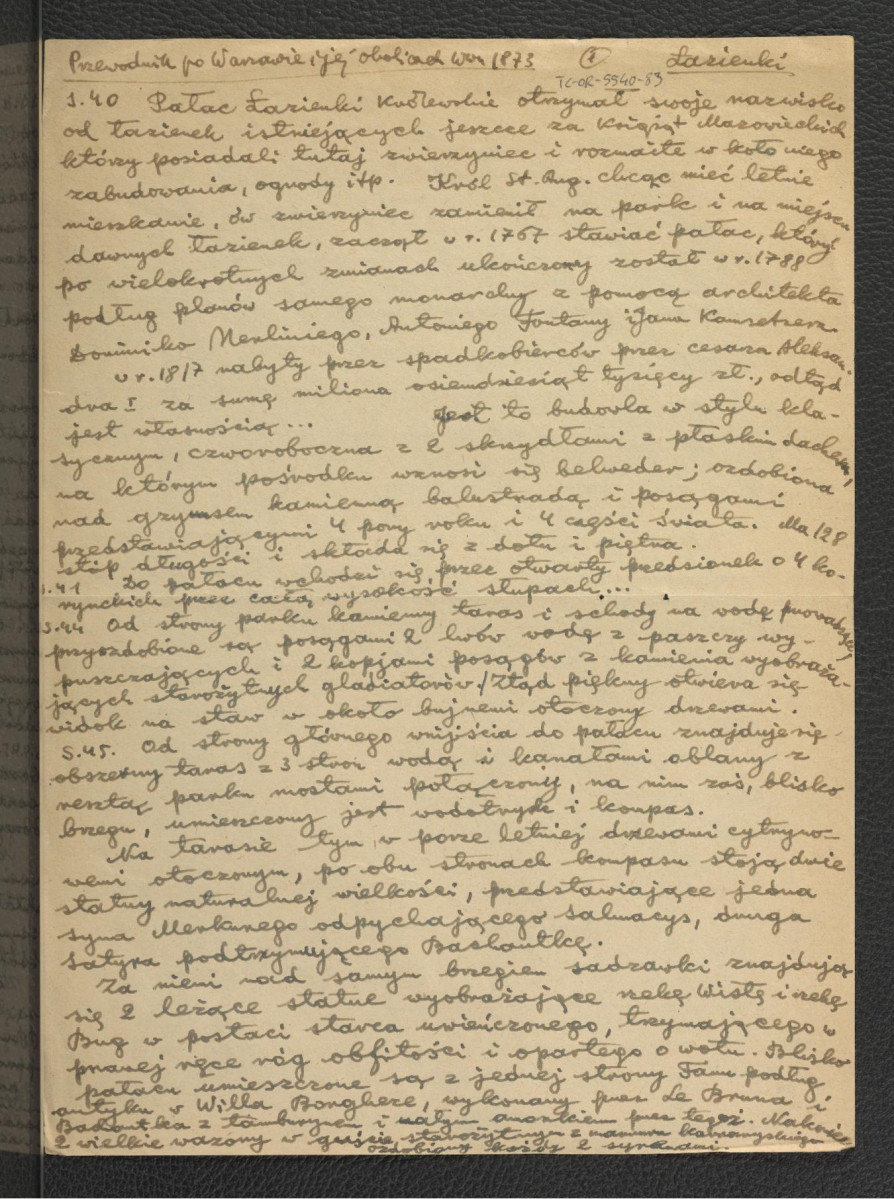 Przewodnik po Warszawie i jej okolicach Wwa 1873 ① Łazienki
TC-OR-5540-83
s.40 Pałac Łazienki Królewskie otrzymał swoje nazwisko
od łazienek istniejących jeszcze za Książąt Mazowieckich
którzy posiadali tutaj zwierzyniec i rozmaite w koło niego
zabudowania, ogrody itp. Król St. Aug. chcąc mieć letnie
mieszkanie, ów zwierzyniec zamienił na park i na miejscu
dawnych łazienek, zaczął w r. 1767 stawiać pałac, który
po wielokrotnych zmianach ukończony został w r. 1788
podług planów samego monarchy z pomocą architekta
Dominiko Merliniego, Antoniego Fontany i Jana Kamsetzera.
w r. 1817 nabyty przez spadkobierców przez cesarza Aleksan-
dra I za sumę miliona osiemdziesiąt tysięcy zł., odtąd
jest własnością... Jest to budowla w stylu kla-
sycznym, czworoboczna z 2 skrzydłami z płaskim dachem,
na którym pośrodku wznosi się belweder; ozdobiona
nad gzymsem kamienną balustradą i posągami
przedstawiającymi 4 pory roku i 4 części świata. Ma 128
stóp długości i składa się z dołu i piętra.
s.41 Do pałacu wchodzi się przez otwarty przedsionek o 4 ko-
rynckich przez całą wysokość słupach...
s.44 Od strony parku kamienny taras i schody na wodę prowadzące,
przyozdobione są posągami 2 lwów wodę z paszczy wy-
puszczających i 2 kopjami posągów z kamienia wyobraża-
jących starożytnych gladiatorów./Ztąd piękny otwiera się
widok na staw w około bujnemi otoczony drzewami.
s.45. Od strony głównego wnijścia do pałacu znajduje się
obszerny taras z 3 stron wodą i kanałami oblany z
resztą parku mostami połączony, na nim zaś, blisko
brzegu, umieszczony jest wodotrysk i kompas.
Na tarasie tym w porze letniej drzewami cytryno-
wemi otoczonym, po obu stronach kompasu stoją dwie
statuy naturalnej wielkości, przedstawiające jedna
syna Merkurego odpychającego Salmacys, druga
Satyra podtrzymującego Bachantkę.
Za niemi nad samym brzegiem sadzawki znajdują
się 2 leżące statue wyobrażające rzekę Wisłę i rzekę
Bug w postaci starca uwieńczonego, trzymającego w
prawej ręce róg obfitości i opartego o wołu. Blisko
pałacu umieszczone są z jednej strony Faun podług
antyku w Willa Borgheze, wykonany przez Le Bruna i
Bachantka z tamburynem i małym amorkiem przez tegoż. Nakoniec
2 wielkie wazony w guście starożytnym z marmuru kararyjskiego
ozdobiony każdy 2 syrenami.